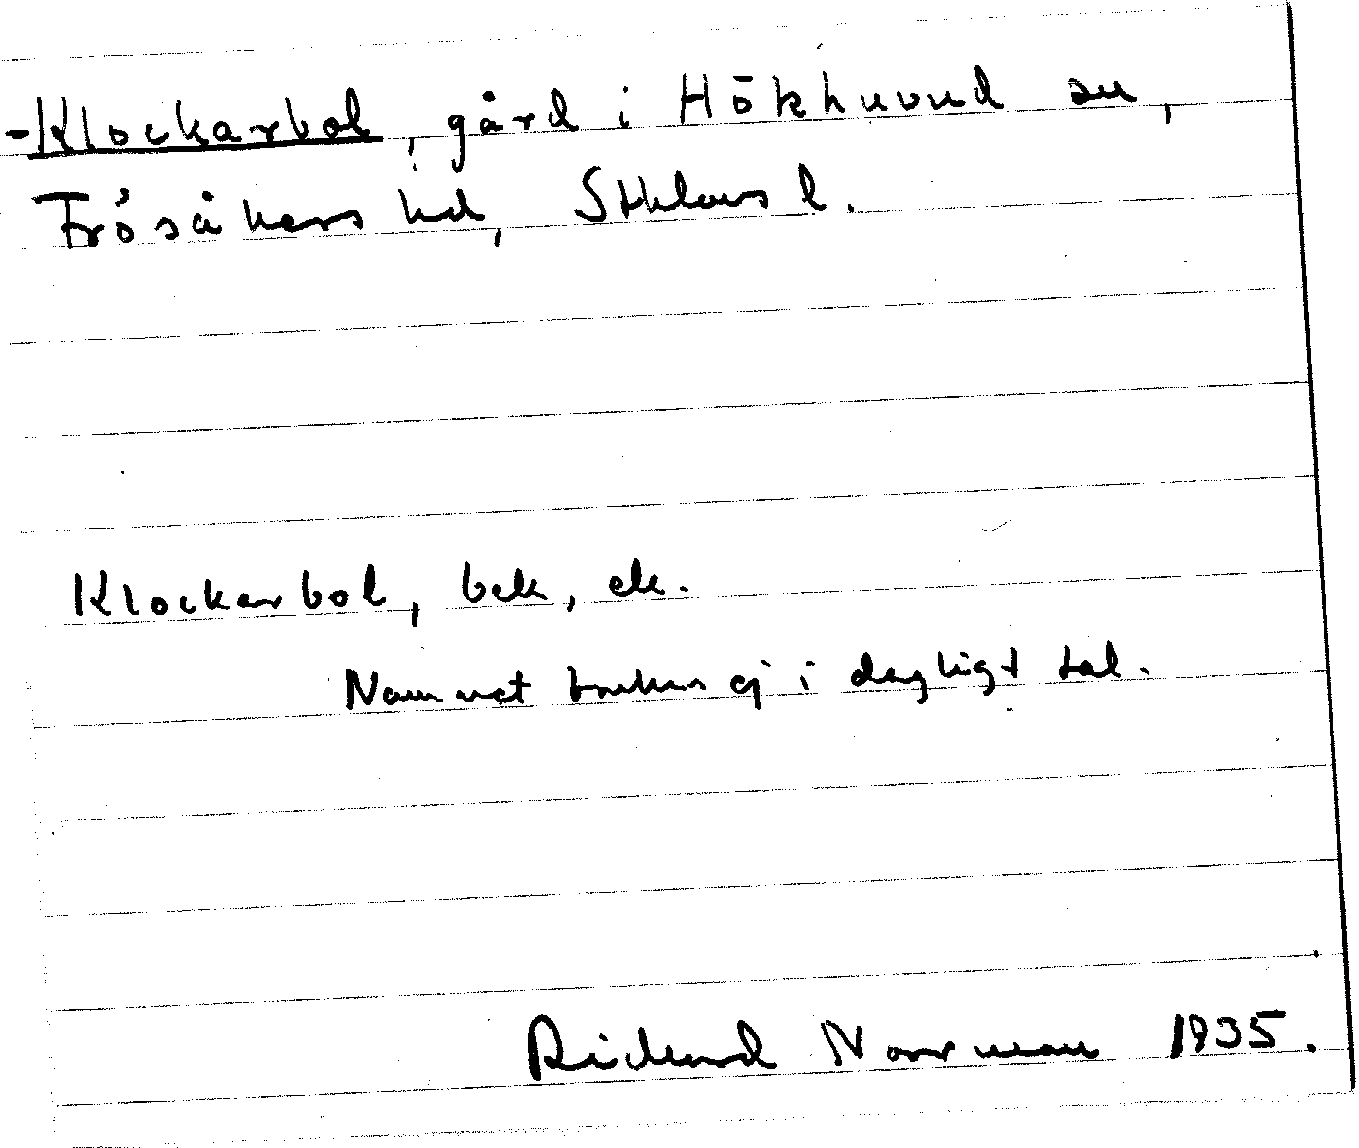 -Klockarbol, gård i Hökhuvud sn,
Frösåkers hd, Sthlms l.
Klockarbol, bek, ek.
Namnet brukas ej i dagligt tal.
Rickard Norrman 1935.